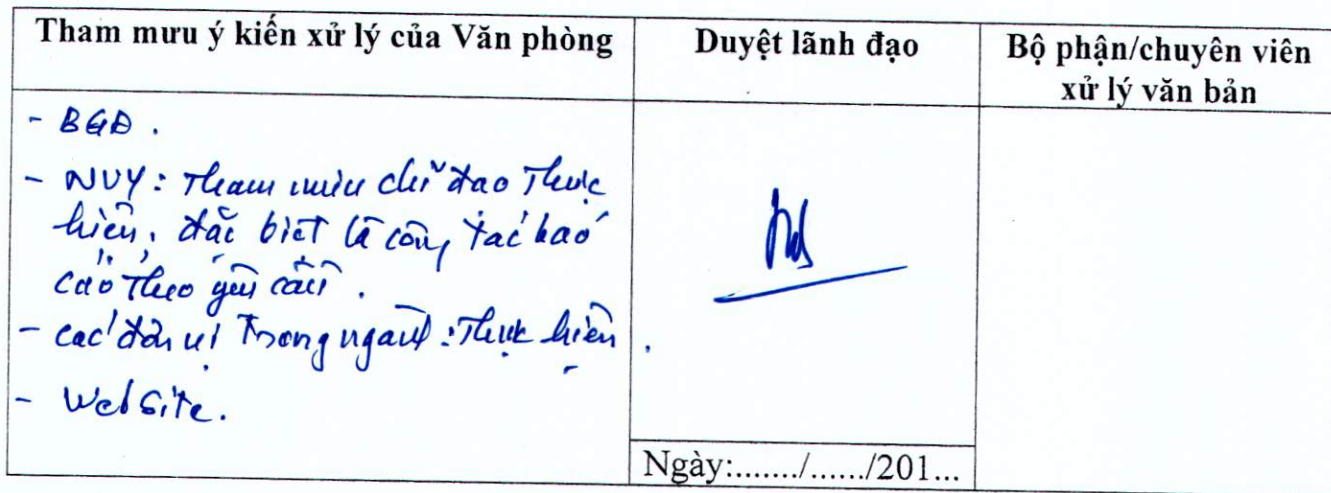 Tham mưu ý kiến xử lý của Văn phòng
Duyệt lãnh đạo
Bộ phận/chuyên viên
xử lý văn bản
- BGĐ.
- NVY: Tham mưu chỉ đạo thực
hiện, đặc biệt là công tác báo
cáo theo yêu cầu.
- Các đơn vị trong ngành: Thực hiện.
- Website.
Ngày:......./....../201...